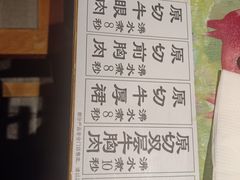 原切牛眼肉
沸水煮8秒
原切牛前胸肉
沸水煮8秒
原切牛厚裙
沸水煮8秒
原切双层牛胸肉
沸水煮10秒